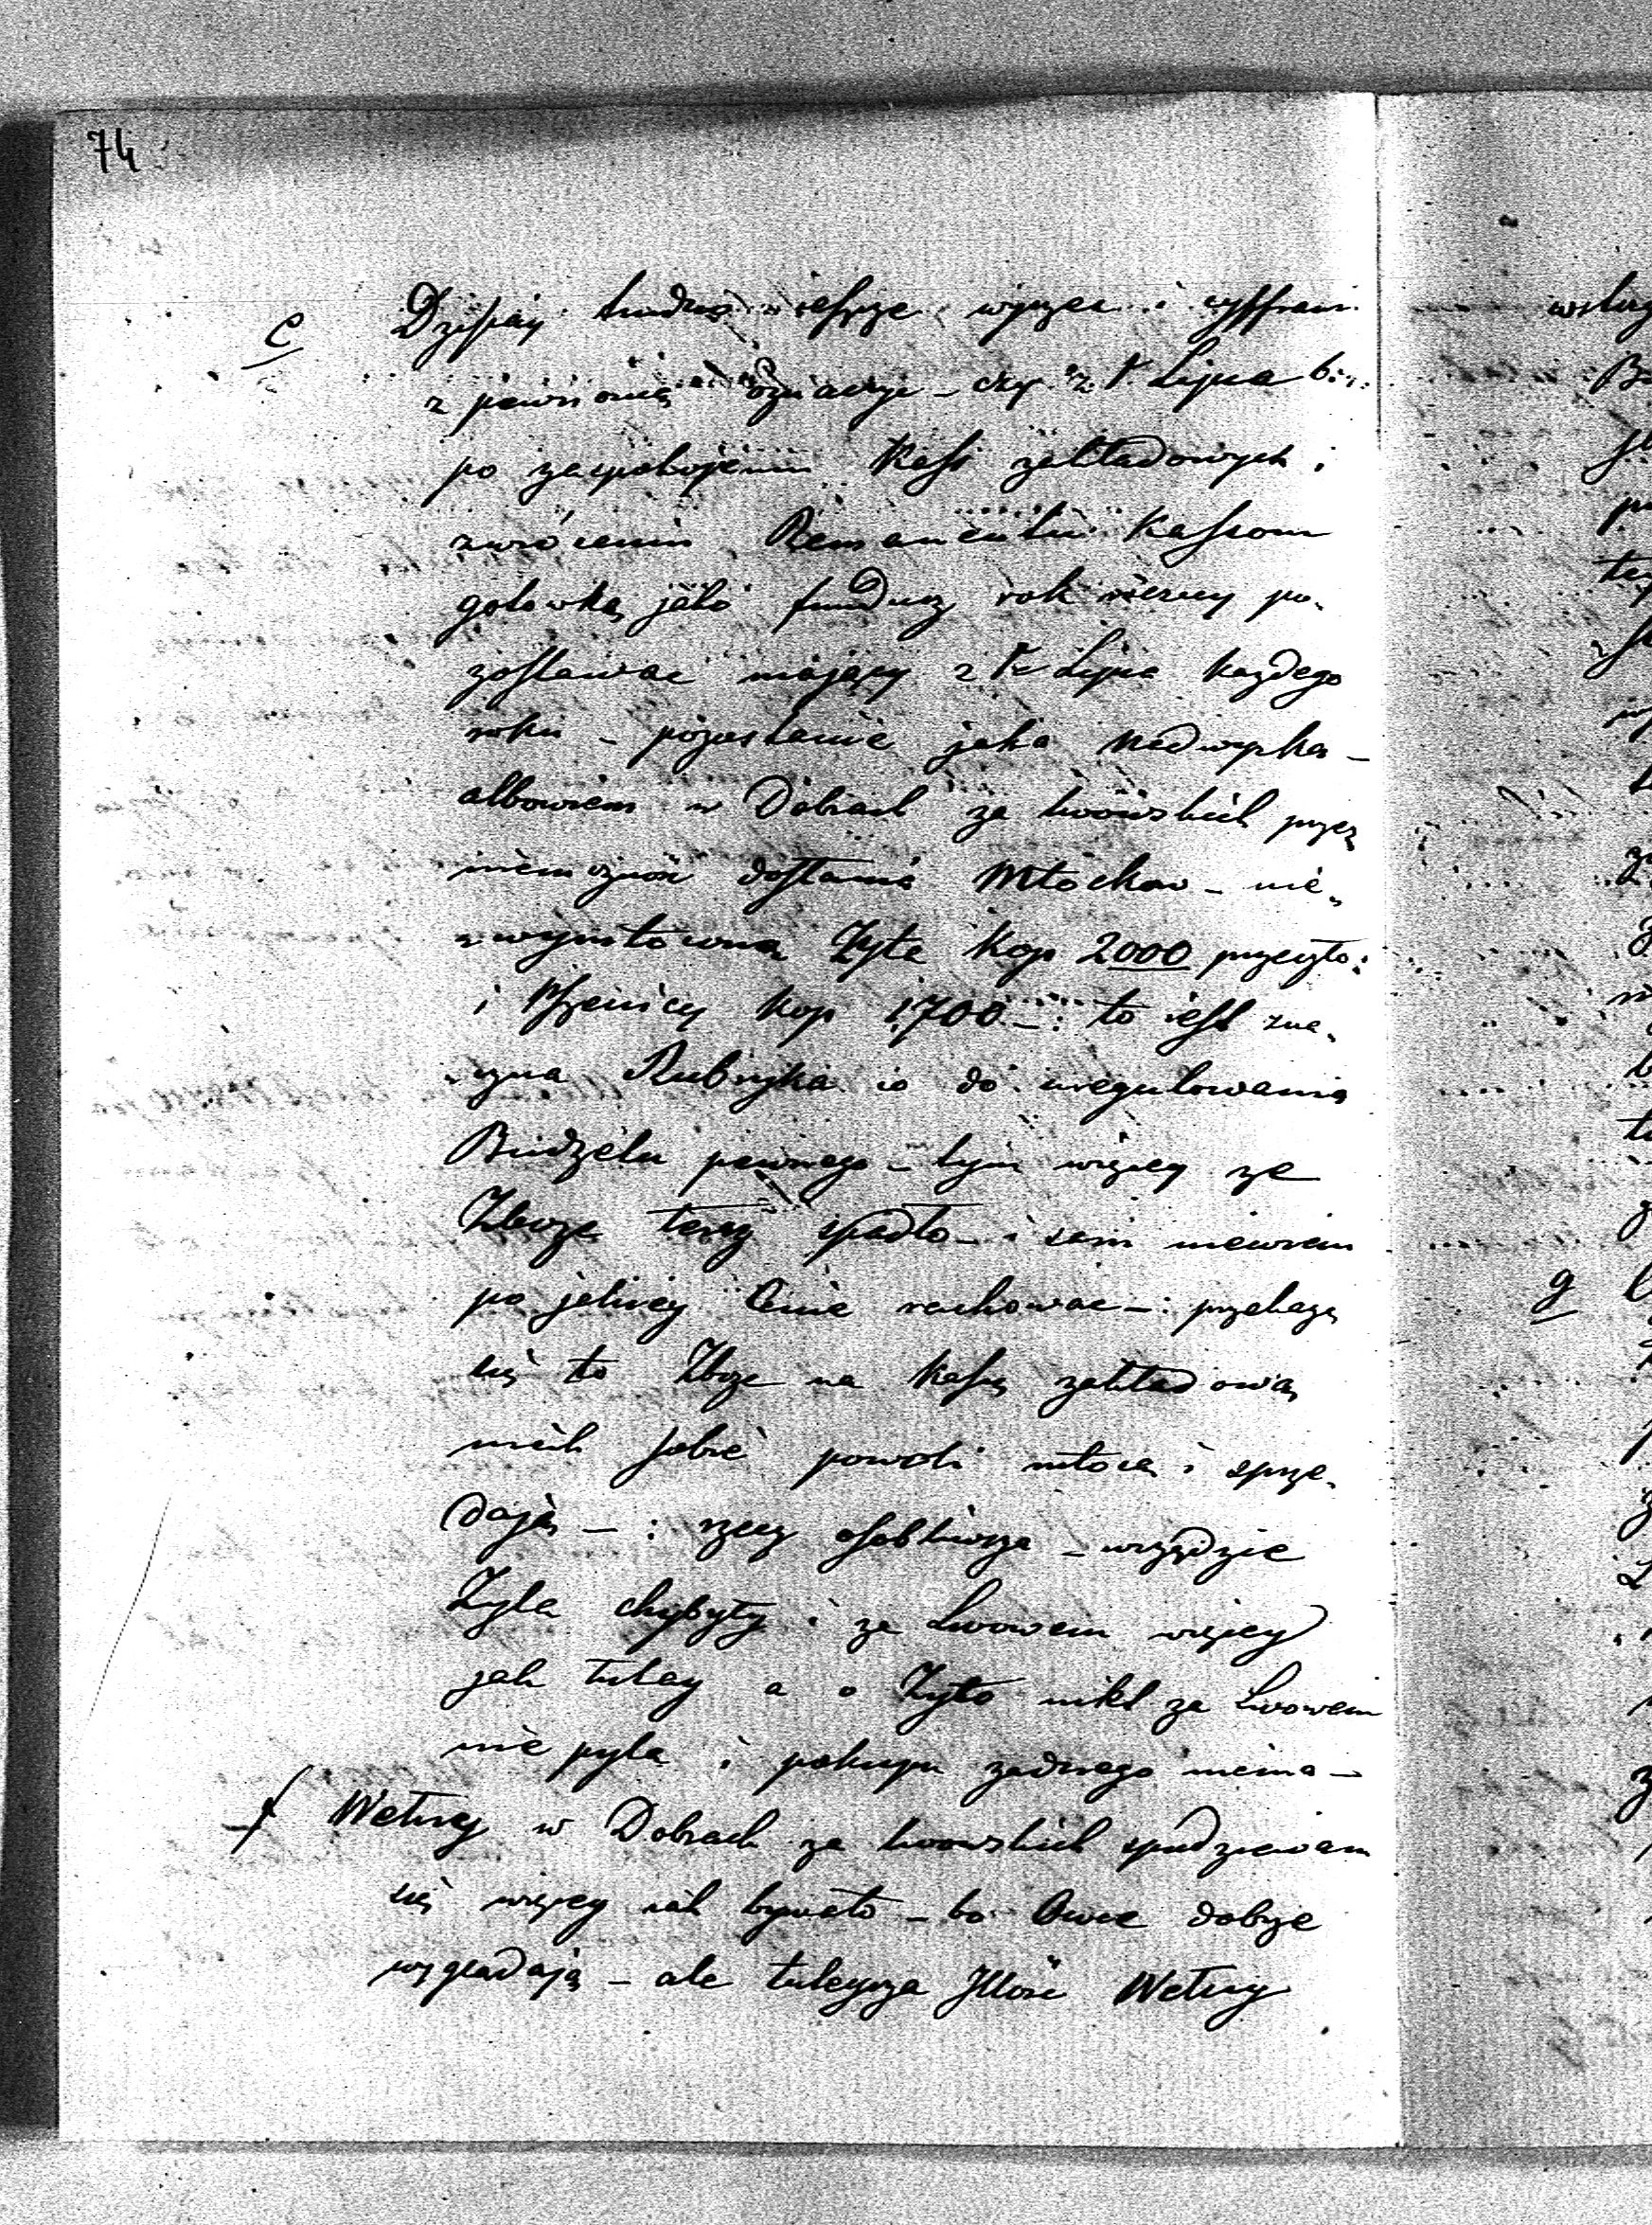 74
e Dzisiay trudno ieszcze wyrzec i cyfframi
z pewnością oznaczyc - czy z 1 Lipca b.r.
po zaspokojeniu Kass zakładowych i
zwróceniu Remanentu Kassom
gotowką jako fundusz rok roczny po-
zostawac mający z 1 Lipca kazdego
roku - pozostanie jaka nadwyzka -
albowiem w Dobrach za lwowskich przez
niemożność dostania Młockow - nie-
wymłocona Zyta Kop 2000 przeszło
i Pszenicy Kop 1700 - : to iest zna-
czna Rubryka co do uregulowania
Budzetu pewnego - tym więcey ze
Zboze teraz spadło - i sam niewiem
po jakiey Cenie rachowac - : przekazę
się to Zboze na Kassę zakładową
niech sobie powoli młocą i sprze-
dają - : rzecz osobliwsza - wszędzie
Zyta chybyły i za Lwowem więcey
jak tutay a o Zyto nikt za Lwowem
nie pyta i pokupu zadnego niema -
f Wełny w Dobrach za lwowskich spodziewam
się więcey jak bywało - bo Owce dobrze
wyglądają - ale tuteysza Ilość Wełny
g